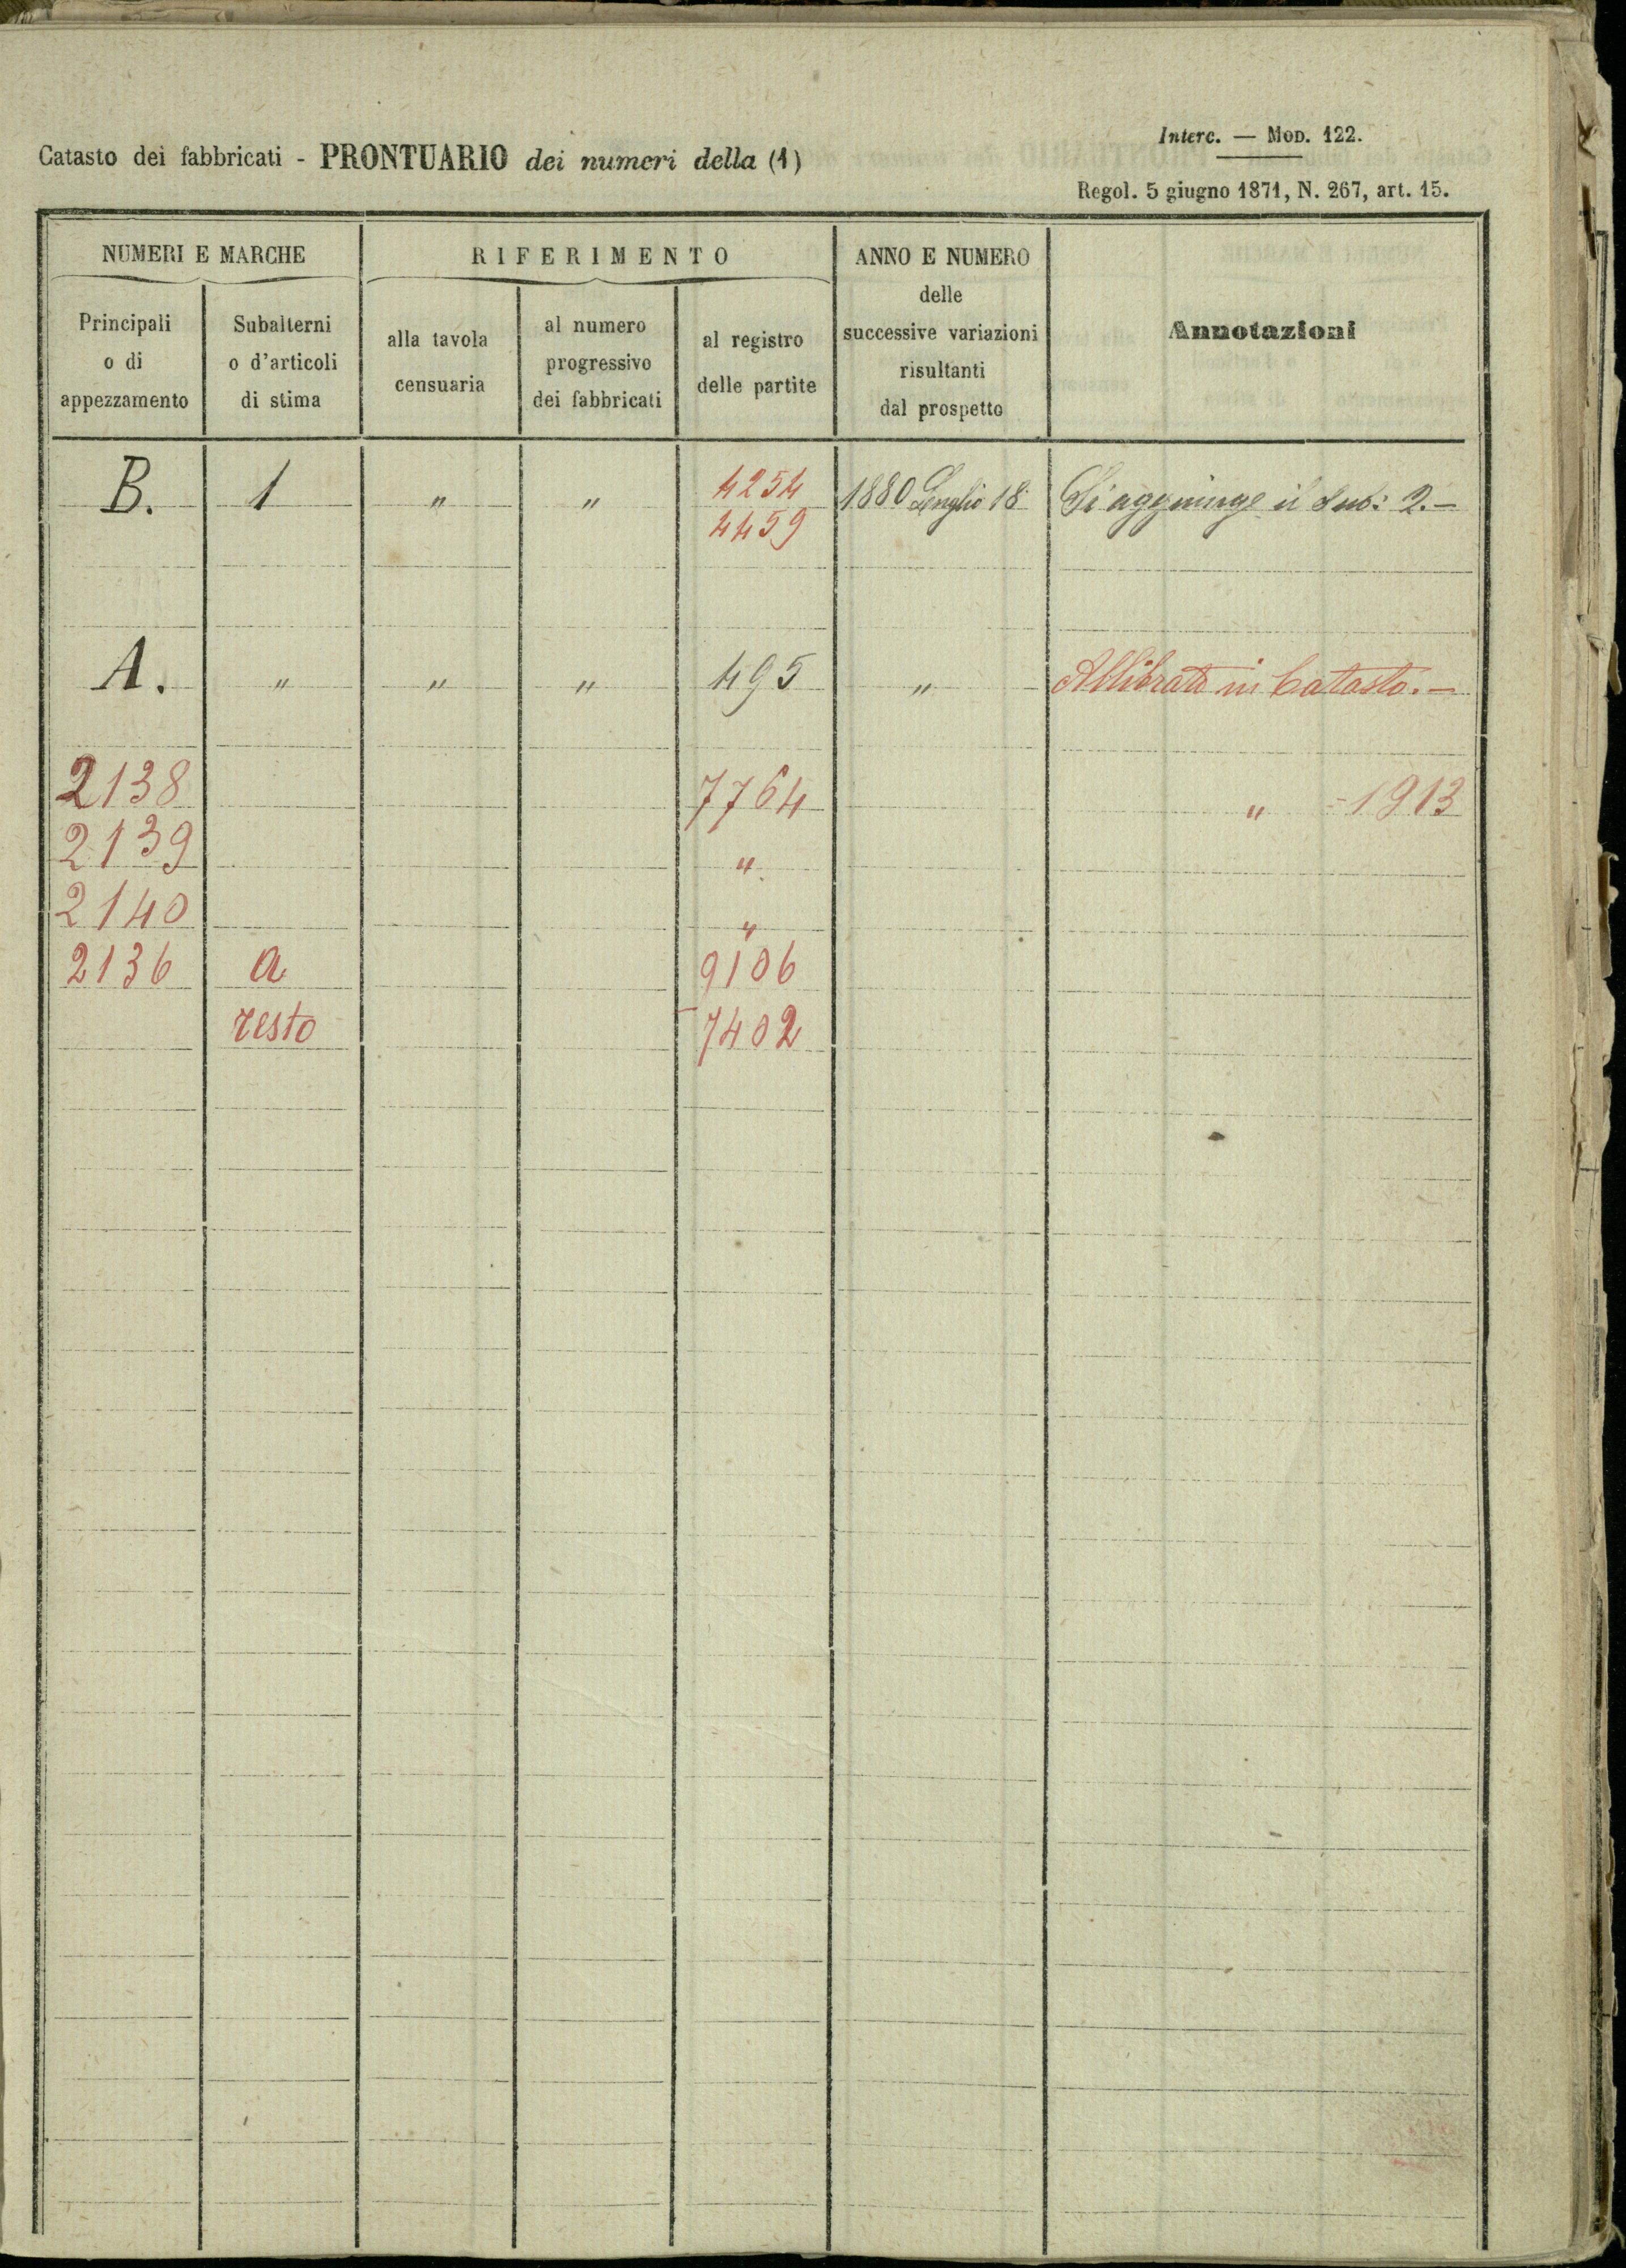 Interc. — MOD. 122.
Catasto dei fabbricati - PRONTUARIO dei numeri della (1)
Regol. 5 giugno 1871, N. 267, art. 15.
NUMERI E MARCHE RIFERIMENTO ANNO E NUMERO delle successive variazioni risultanti dal prospetto Annotazioni
Principali o di appezzamento Subalterni o d'articoli di stima alla tavola censuaria al numero progressivo dei fabbricati al registro delle partite
B. 1 " " 4254 1880 18 Si aggiunge il sub: 2.—
4459
A. " " " 495 " Allibrato in Catasto.—
2138 7764 " =1913
2139 "
2140 "
2136 a 9106
resto 7402